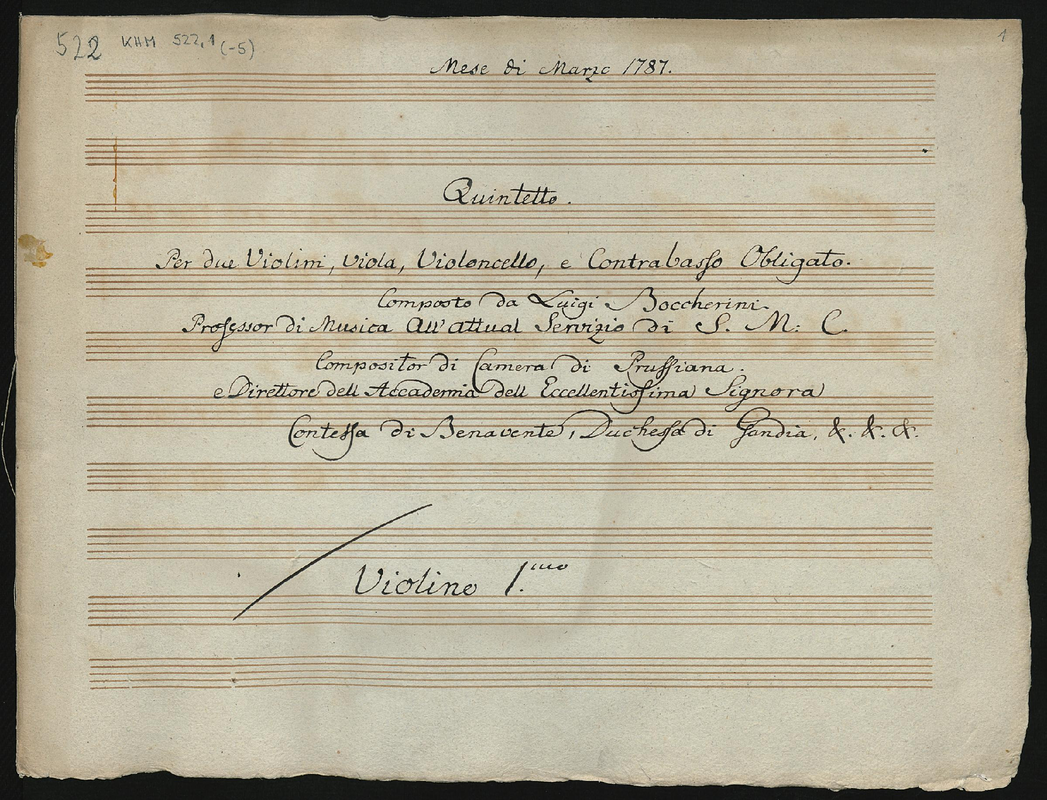 522 KHM 522,1 (-5)
1
Mese di Marzo 1787.
Quintetto.
Per due Violini, Viola, Violoncello, e Contrabasso Obligato.
Composto da Luigi Boccherini
Professor di Musica all'attual Servizio di S. M: C.
Compositor di Camera di Prussiana.
e Direttore dell Accademia dell Eccellentissima Signora
Contessa di Benavente, Duchessa di Gandia, &. &. &.
Violino 1.mo